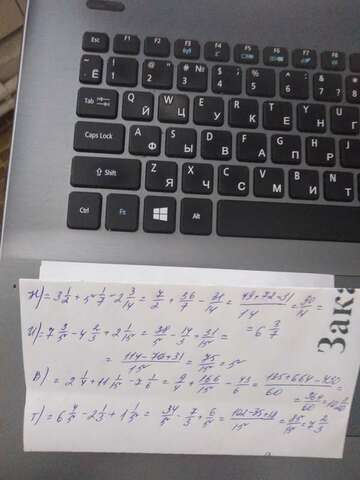 Esc F1 F2 F3 F4 F5 F6 F7 F8
~ Ё ! 1 @ 2 " # 3 № $ 4 ; % 5 ^ 6 : & 7 ? * 8
Tab Q Й W Ц E У R К T Е Y Н U Г
Caps Lock A Ф S Ы D В F А G П H Р
Shift Z Я X Ч C С V М B И N Т
Ctrl Fn Alt
= 3 1/2 + 5 1/7 - 2 3/14 = 7/2 + 36/7 - 31/14 = 49+72-31/14 = 90/14 =
= 6 3/7
и) = 7 3/5 - 4 2/3 + 2 1/15 = 38/5 - 14/3 + 31/15 =
= 114-70+31/15 = 75/15 = 5
в) = 2 1/4 + 11 1/15 - 7 1/6 = 9/4 + 166/15 - 43/6 = 135+664-430/60 =
= 369/60
т) = 6 4/5 - 2 1/3 + 1 1/5 = 34/5 - 7/3 + 6/5 = 102-35+18/15 = 85/15 = 7 2/3
Зака